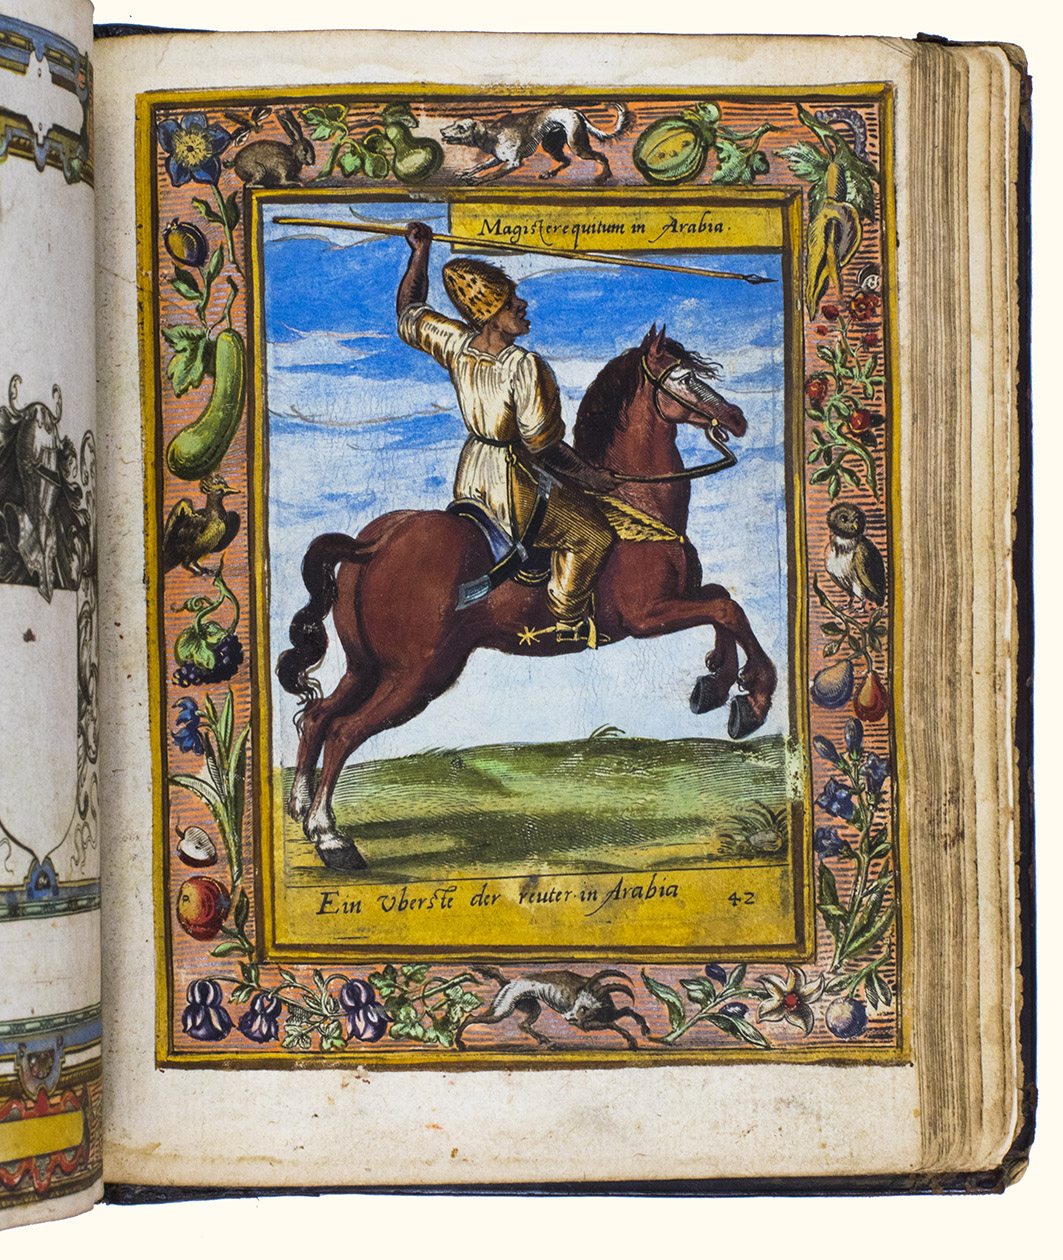 Magister equitum in Arabia.
Ein vberste der reuter in Arabia 42